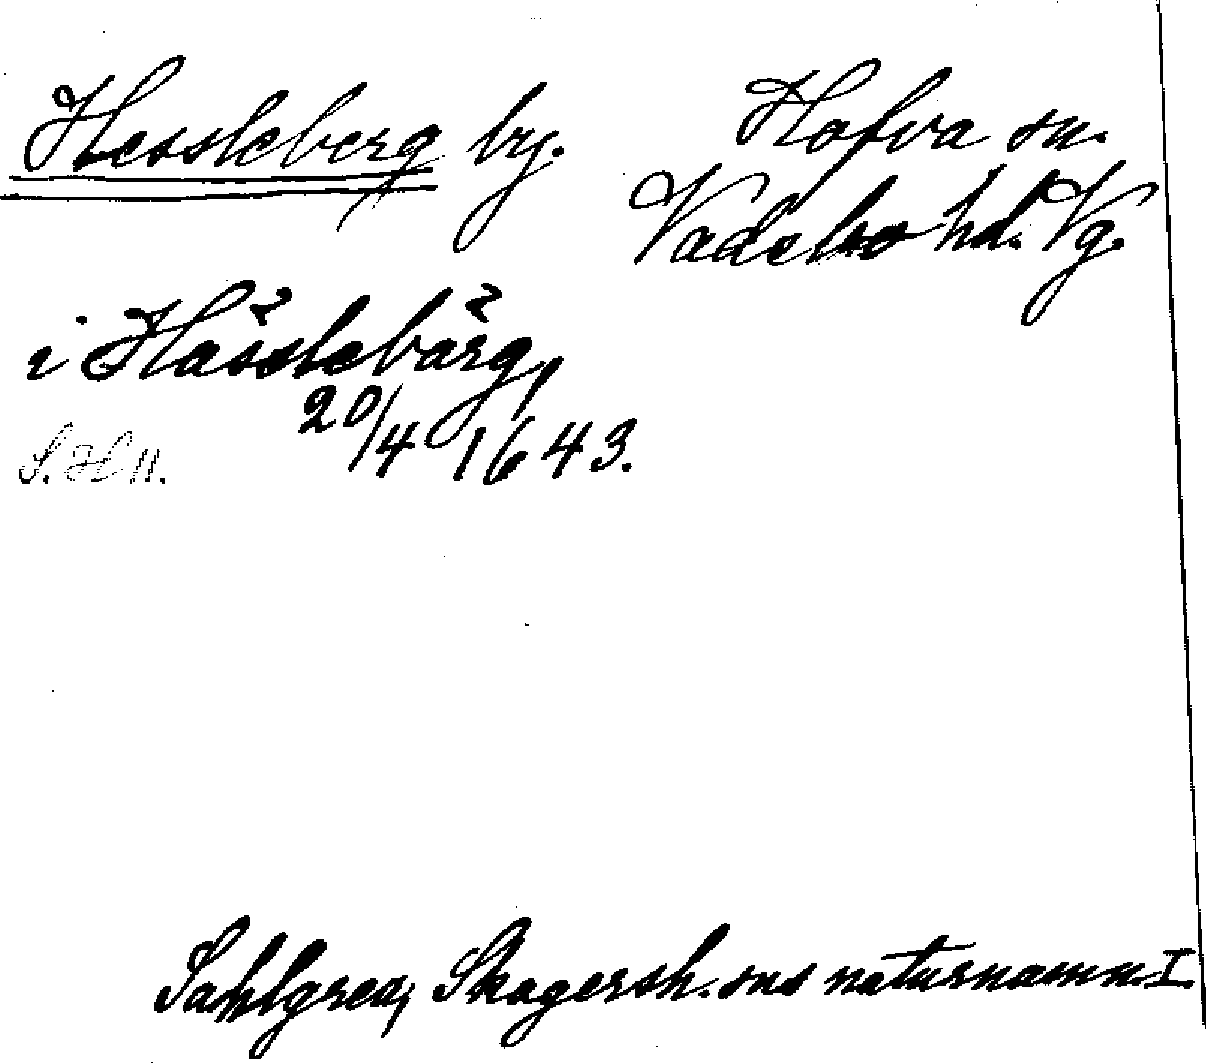 Hessleberg by.
Hofva sn.
Vadsbo hd. Vg.
i Hässlebärg,
20/4 1643.
S. H 11.
Sahlgren, Skagersh. sns naturnamn. I.